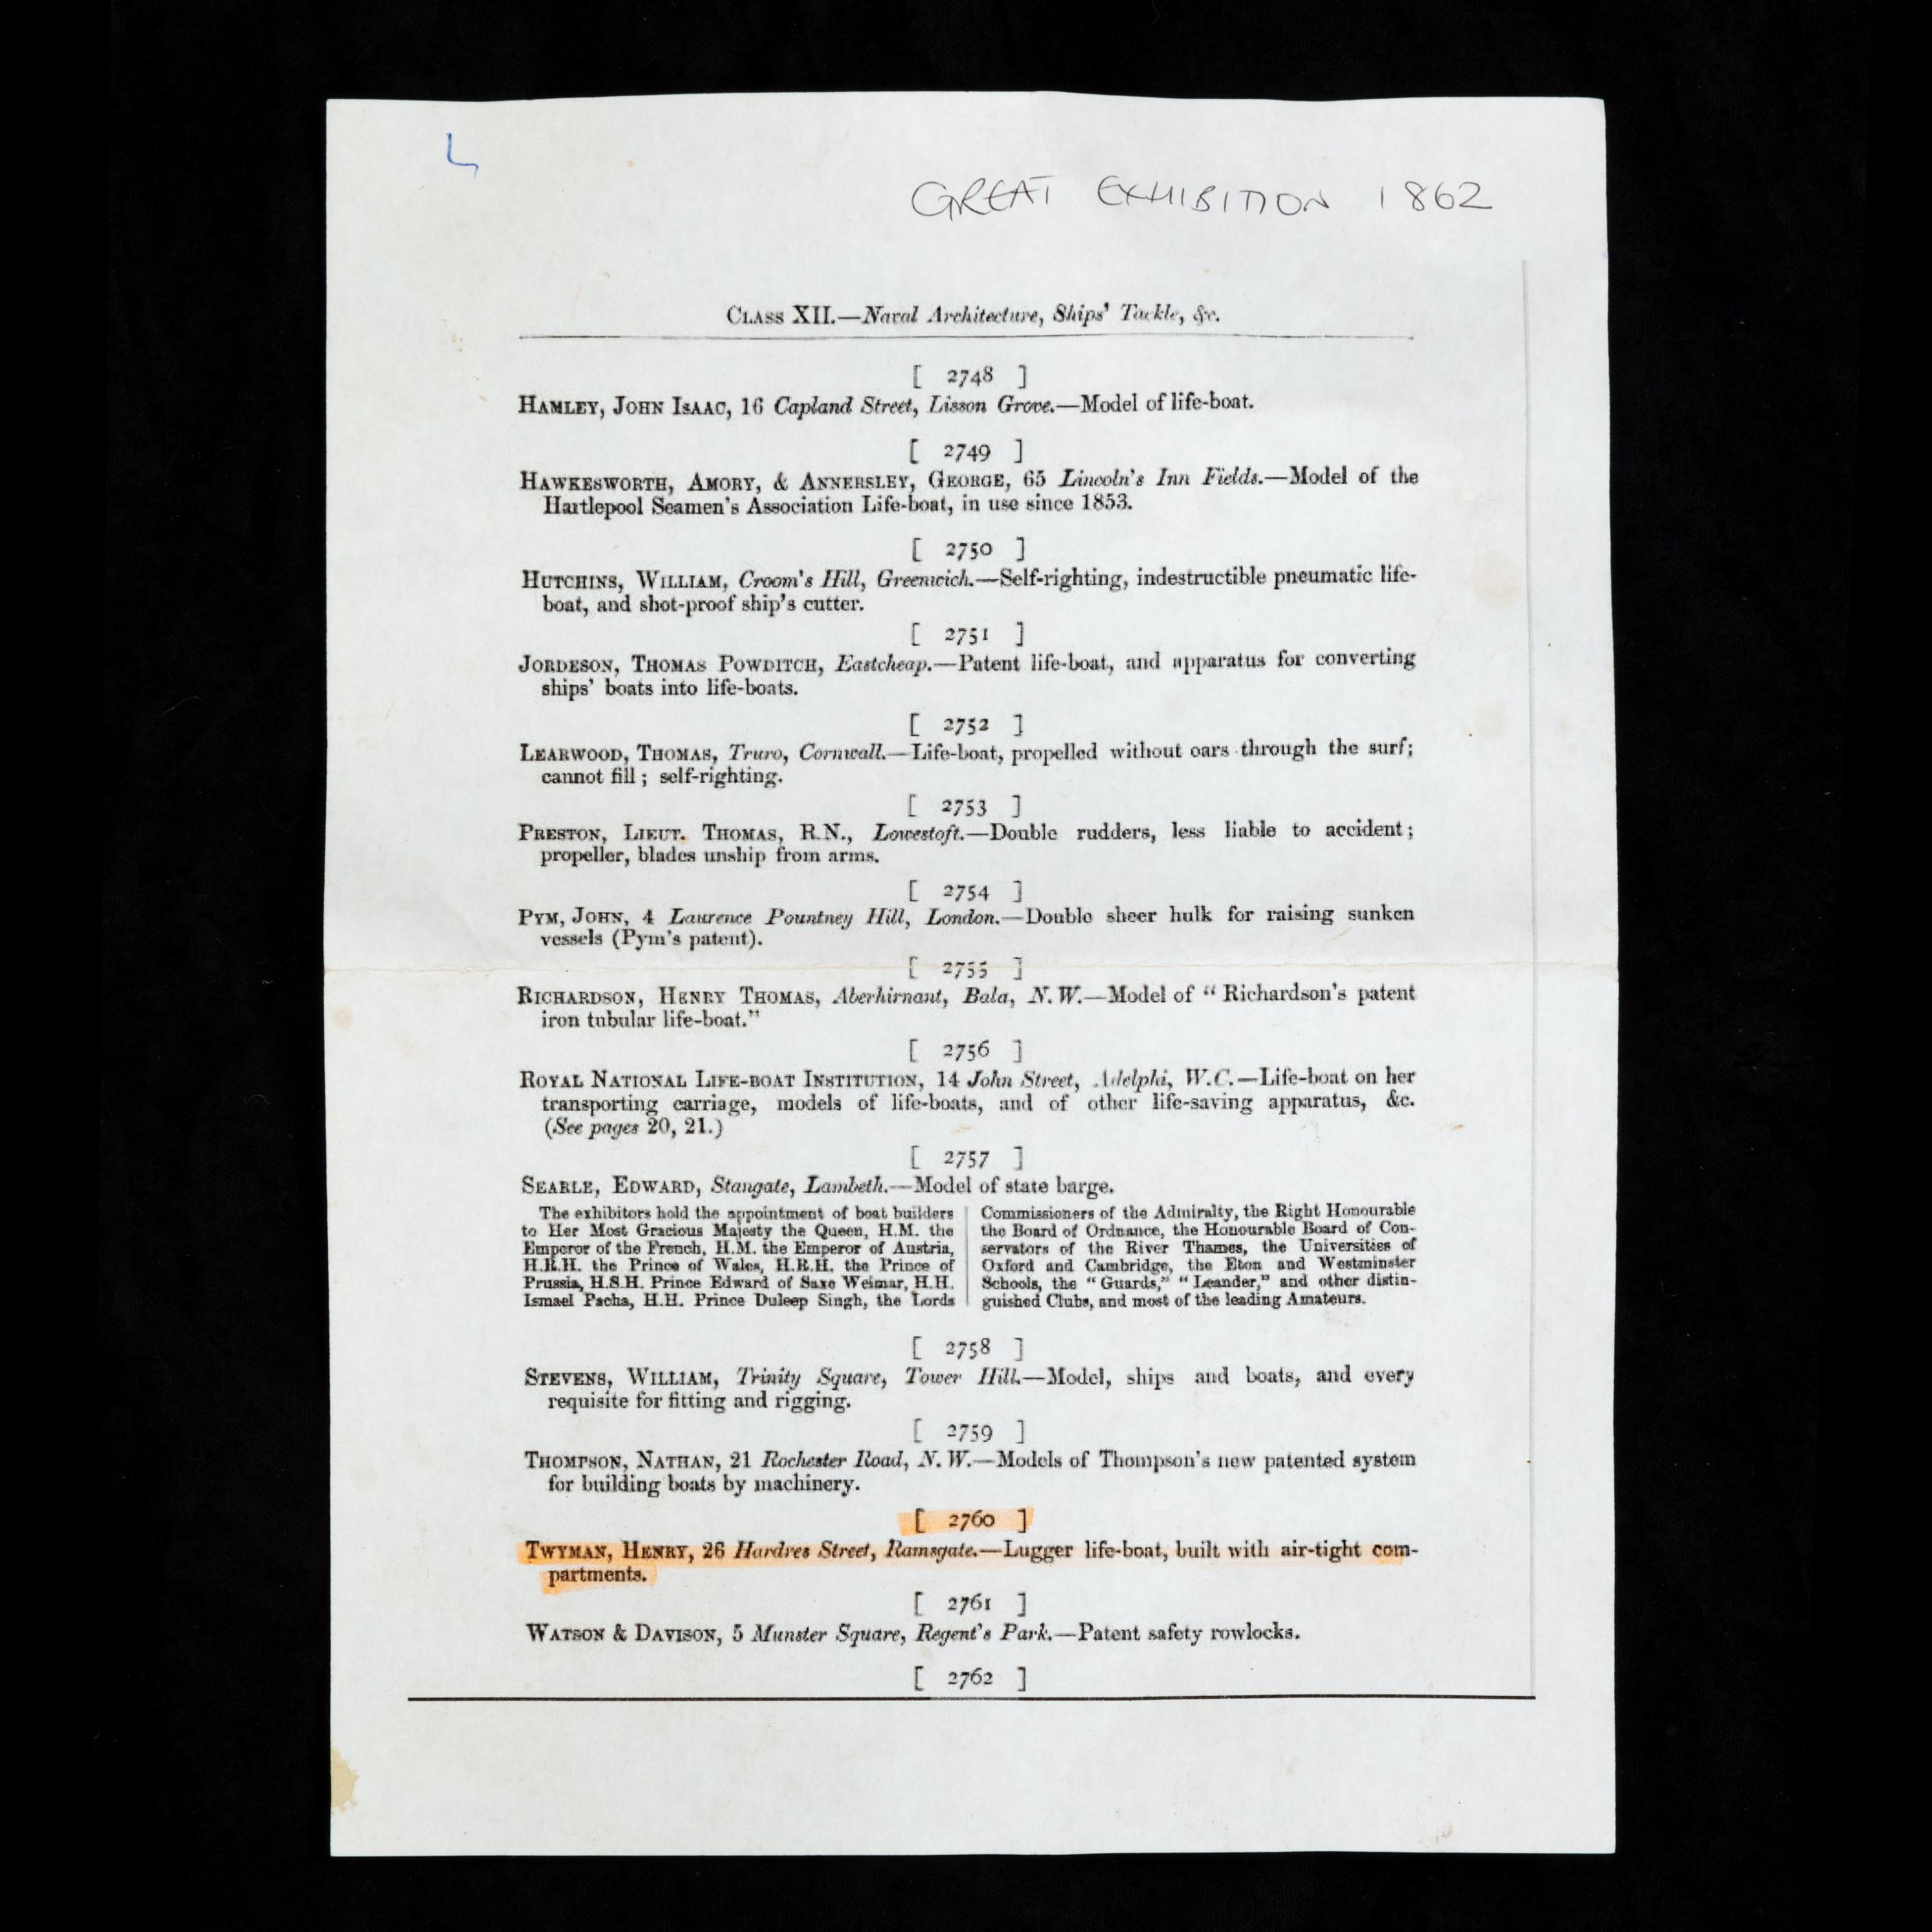 L
GREAT EXHIBITION 1862
CLASS XII.—Naval Architecture, Ships' Tackle, &c.
[ 2748 ]
HAMLEY, JOHN ISAAC, 16 Capland Street, Lisson Grove.—Model of life-boat.
[ 2749 ]
HAWKESWORTH, AMORY, & ANNERSLEY, GEORGE, 65 Lincoln's Inn Fields.—Model of the
Hartlepool Seamen's Association Life-boat, in use since 1853.
[ 2750 ]
HUTCHINS, WILLIAM, Croom's Hill, Greenwich.—Self-righting, indestructible pneumatic life-
boat, and shot-proof ship's cutter.
[ 2751 ]
JORDESON, THOMAS POWDITCH, Eastcheap.—Patent life-boat, and apparatus for converting
ships' boats into life-boats.
[ 2752 ]
LEARWOOD, THOMAS, Truro, Cornwall.—Life-boat, propelled without oars through the surf;
cannot fill; self-righting.
[ 2753 ]
PRESTON, LIEUT. THOMAS, R.N., Lowestoft.—Double rudders, less liable to accident;
propeller, blades unship from arms.
[ 2754 ]
PYM, JOHN, 4 Laurence Pountney Hill, London.—Double sheer hulk for raising sunken
vessels (Pym's patent).
[ 2755 ]
RICHARDSON, HENRY THOMAS, Aberhirnant, Bala, N.W.—Model of "Richardson's patent
iron tubular life-boat."
[ 2756 ]
ROYAL NATIONAL LIFE-BOAT INSTITUTION, 14 John Street, Adelphi, W.C.—Life-boat on her
transporting carriage, models of life-boats, and of other life-saving apparatus, &c.
(See pages 20, 21.)
[ 2757 ]
SEARLE, EDWARD, Stangate, Lambeth.—Model of state barge.
The exhibitors hold the appointment of boat builders
to Her Most Gracious Majesty the Queen, H.M. the
Emperor of the French, H.M. the Emperor of Austria,
H.R.H. the Prince of Wales, H.R.H. the Prince of
Prussia, H.S.H. Prince Edward of Saxe Weimar, H.H.
Ismael Pacha, H.H. Prince Duleep Singh, the Lords
Commissioners of the Admiralty, the Right Honourable
the Board of Ordnance, the Honourable Board of Con-
servators of the River Thames, the Universities of
Oxford and Cambridge, the Eton and Westminster
Schools, the "Guards," "Leander," and other distin-
guished Clubs, and most of the leading Amateurs.
[ 2758 ]
STEVENS, WILLIAM, Trinity Square, Tower Hill.—Model, ships and boats, and every
requisite for fitting and rigging.
[ 2759 ]
THOMPSON, NATHAN, 21 Rochester Road, N.W.—Models of Thompson's new patented system
for building boats by machinery.
[ 2760 ]
TWYMAN, HENRY, 26 Hardres Street, Ramsgate.—Lugger life-boat, built with air-tight com-
partments.
[ 2761 ]
WATSON & DAVISON, 5 Munster Square, Regent's Park.—Patent safety rowlocks.
[ 2762 ]